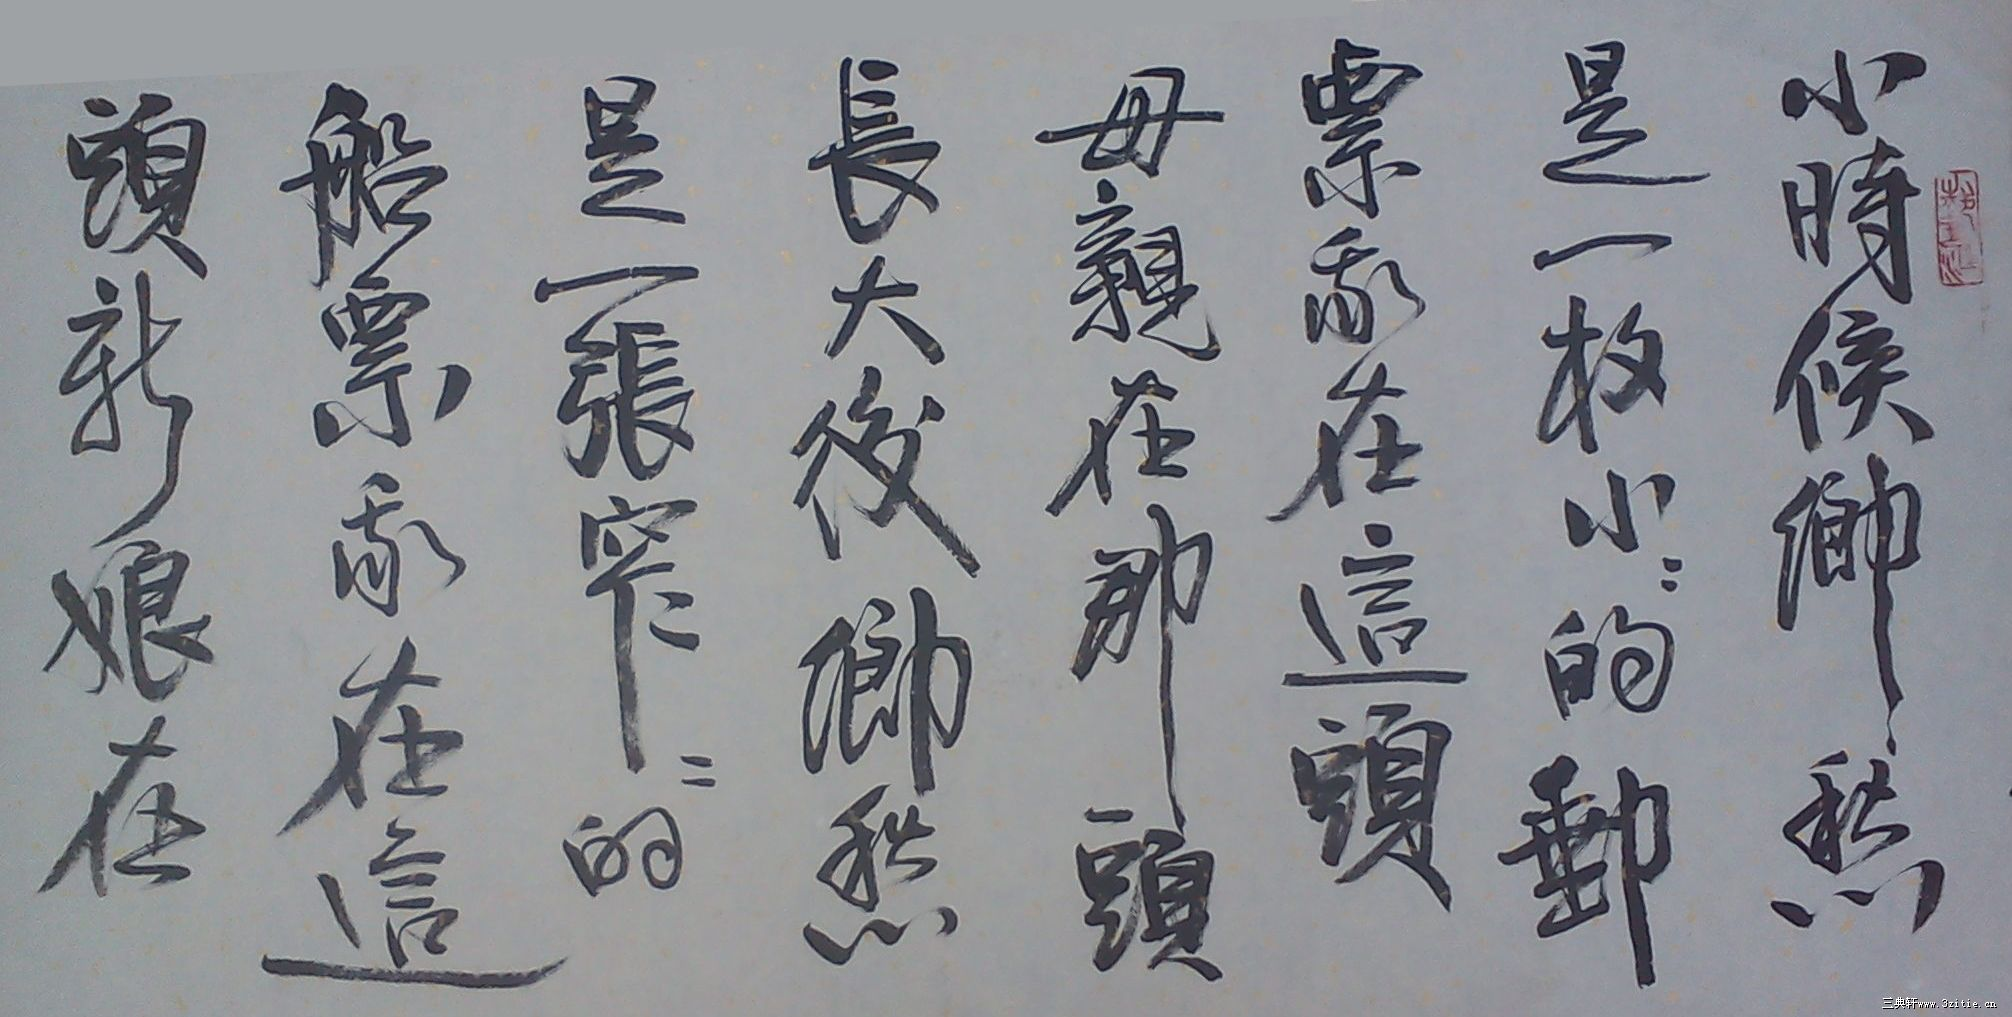 小時候鄉愁
是一枚小〻的郵
票我在這頭
母親在那頭
長大後鄉愁
是一張窄〻的
船票我在這
頭新娘在
三典轩www.3zitie.cn